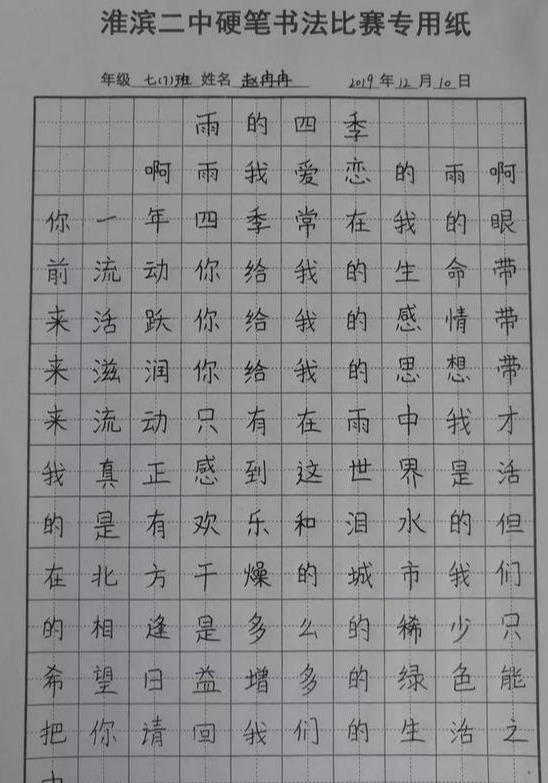 淮滨二中硬笔书法比赛专用纸
年级 七(7)班 姓名 赵冉冉 2019年12月10日
雨的四季
啊雨我爱恋的雨啊
你一年四季常在我的眼
前流动你给我的生命带
来活跃你给我的感情带
来滋润你给我的思想带
来流动只有在雨中我才
我真正感到这世界是活
的是有欢乐和泪水的但
在北方干燥的城市我们
的相逢是多么的稀少只
希望日益增多的绿色能
把你请回我们的生活之